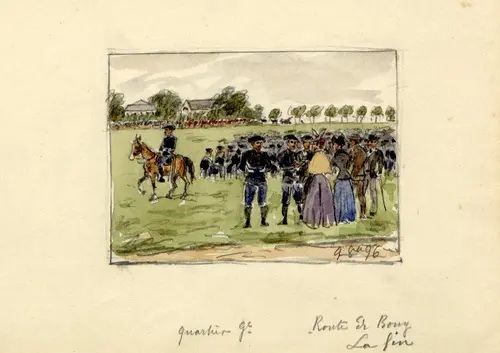 9 8bre 96
quartier gl
Route de Bouy
La fin